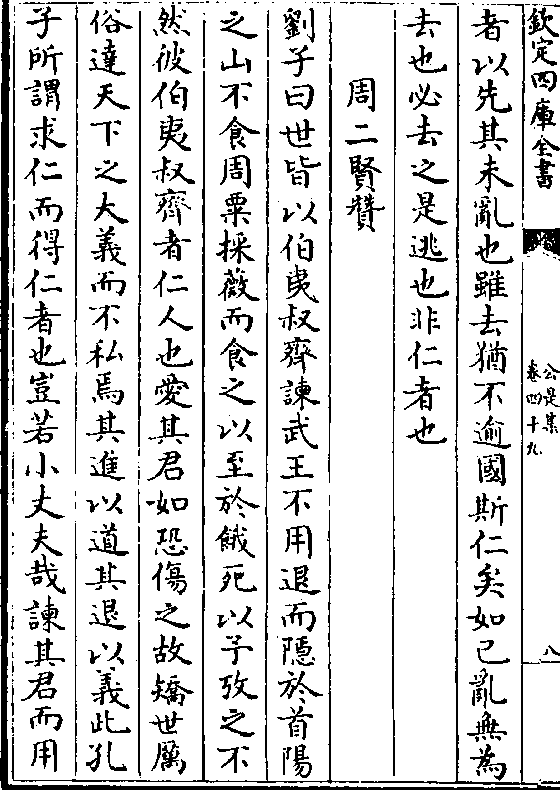 欽定四庫全書
公是集
卷四十九
八
者以先其未亂也雖去猶不逾國斯仁矣如已亂無為
去也必去之是逃也非仁者也
周二賢贊
劉子曰世皆以伯夷叔齊諫武王不用退而隱於首陽
之山不食周粟採薇而食之以至於餓死以予攷之不
然彼伯夷叔齊者仁人也愛其君如恐傷之故矯世厲
俗達天下之大義而不私焉其進以道其退以義此孔
子所謂求仁而得仁者也豈若小丈夫哉諫其君而用